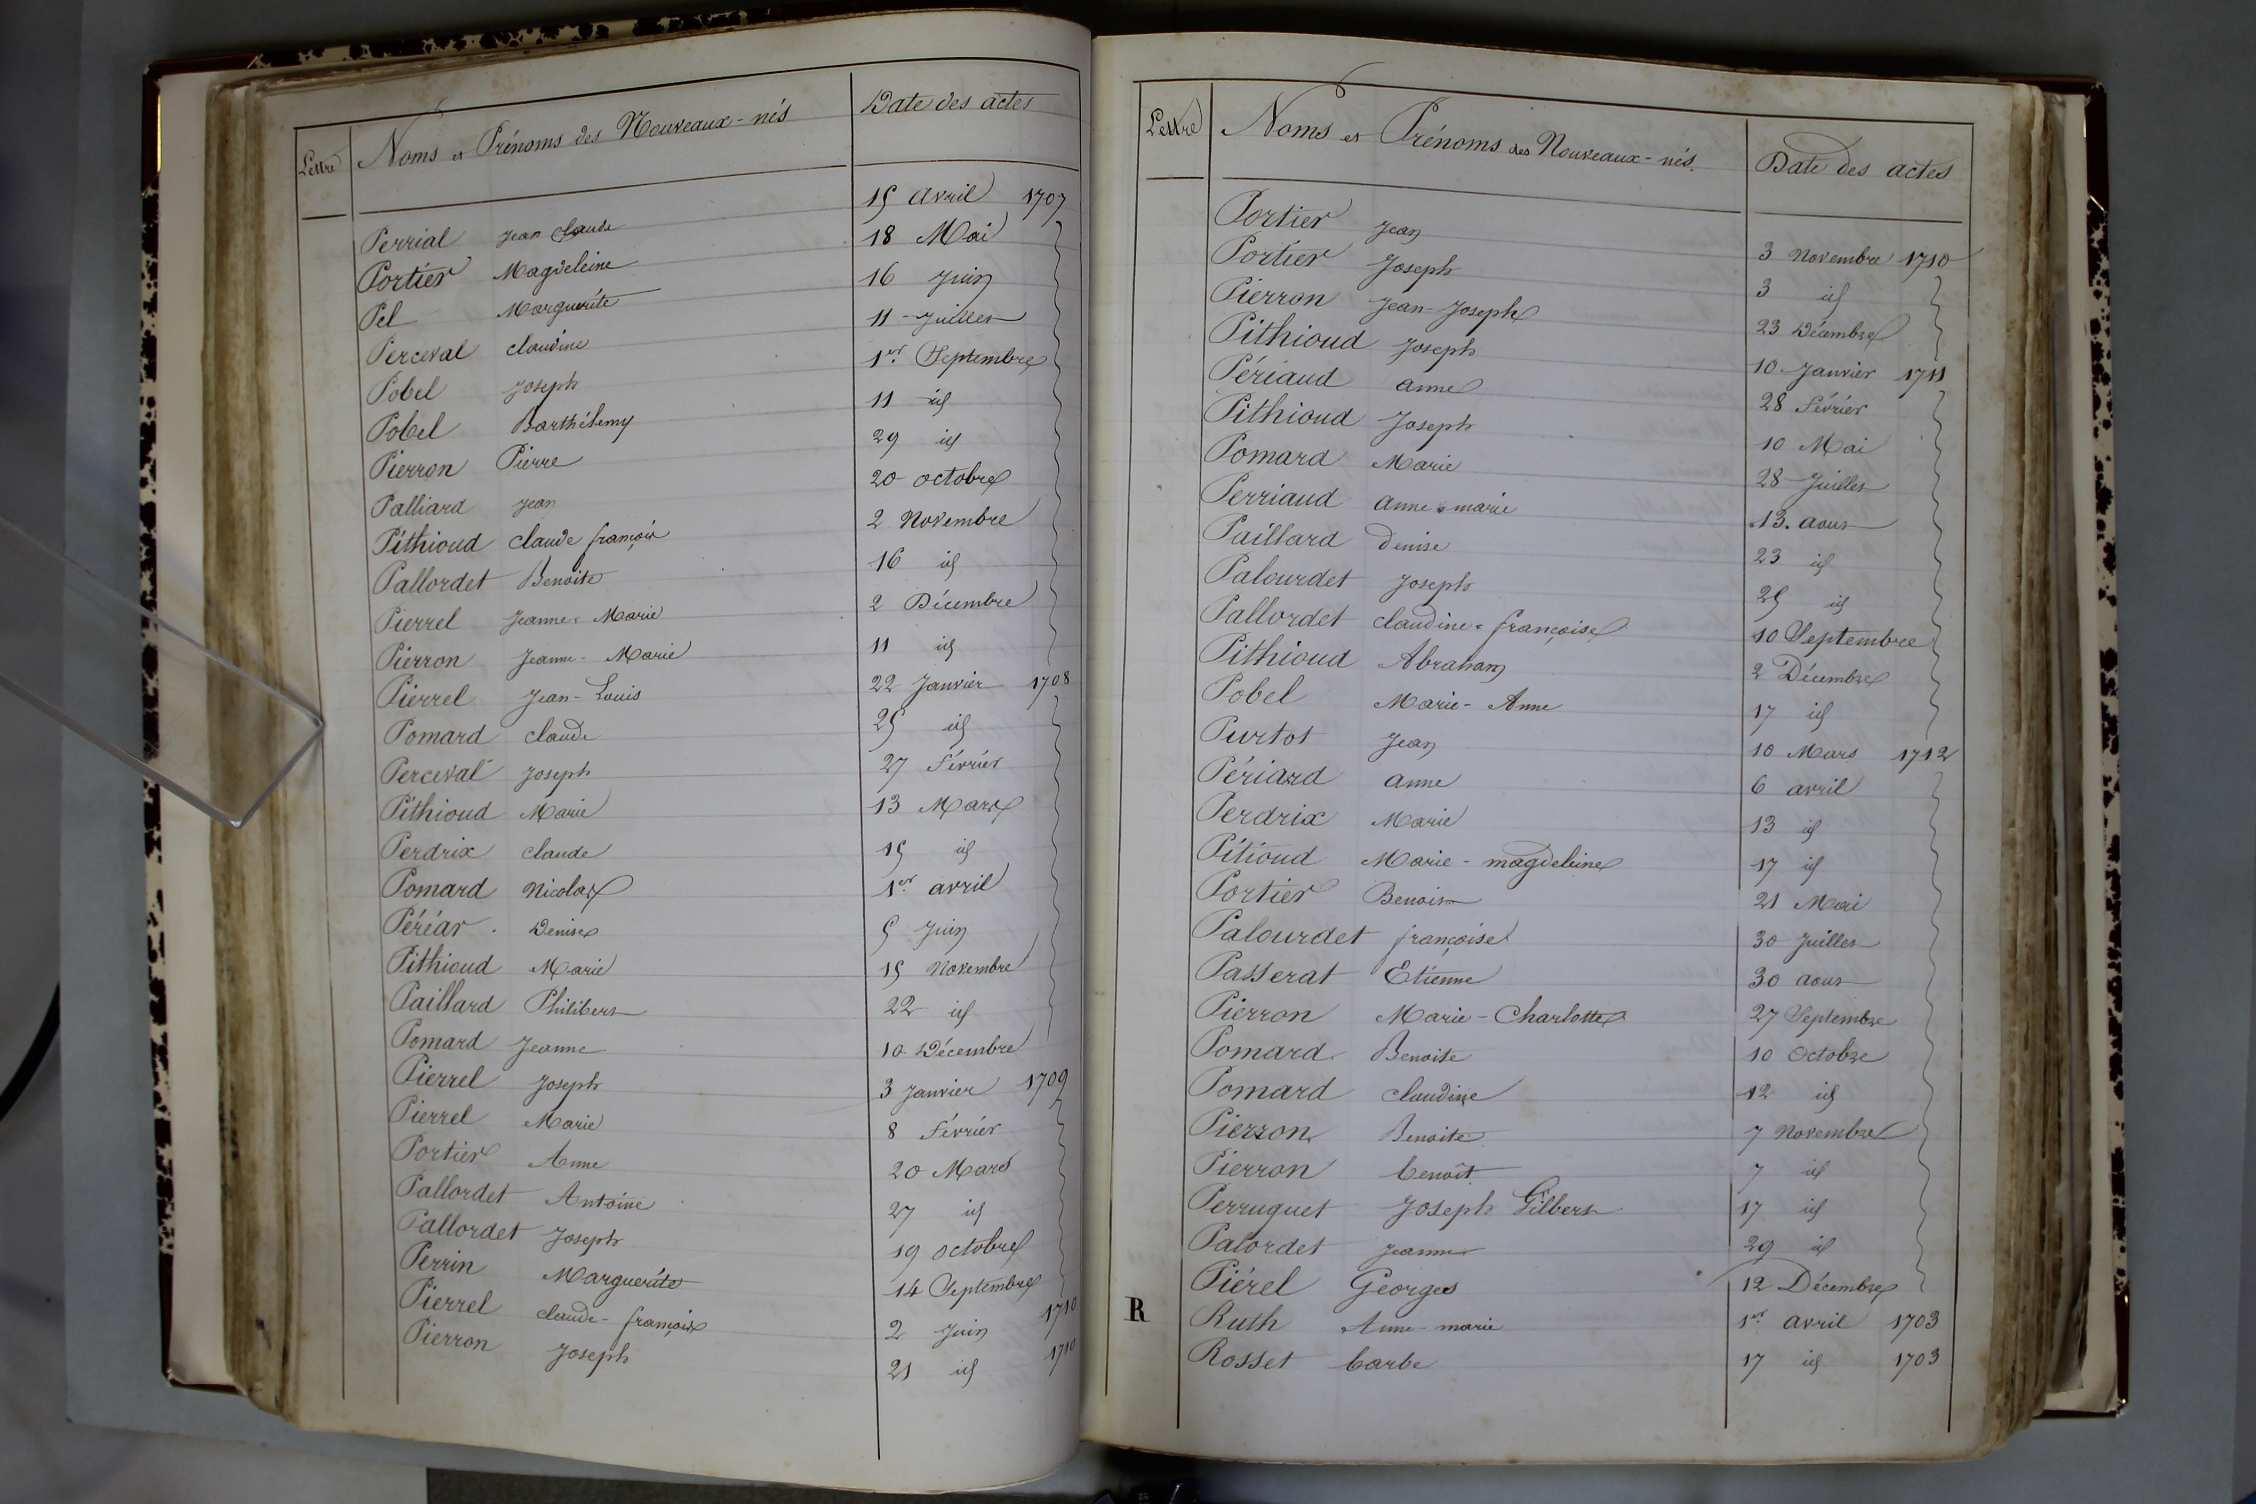 Lettre Noms et Prénoms des Nouveaux-nés Date des actes
Perrial Jean Claude 15 avril 1707
Portier Magdeleine 18 Mai
Pel Marguerite 16 Juin
Perceval claudine 11 Juillet
Pobel Joseph 1er Septembre
Pobel Barthélemy 11 id
Pierron Pierre 29 id
Palliard Jean 20 octobre
Pithioud Claude françois 2 Novembre
Pallordet Benoite 16 id
Pierrel Jeanne-Marie 2 Décembre
Pierron Jeanne-Marie 11 id
Pierrel Jean-Louis 22 Janvier 1708
Pomard claude 25 id
Perceval Joseph 27 Février
Pithioud Marie 13 Mars
Perdrix claude 15 id
Pomard Nicolas 1er avril
Péréar Denise 5 Juin
Pithioud Marie 15 Novembre
Paillard Philibert 22 id
Pomard Jeanne 10 Décembre
Pierrel Joseph 3 Janvier 1709
Pierrel Marie 8 Février
Portier Anne 20 Mars
Pallordet Antoine 27 id
Pallordet Joseph 19 octobre
Perrin Marguerite 14 Septembre
Pierrel claude-françois 2 Juin 1710
Pierron Joseph 21 id 1710
Lettre Noms et Prénoms des Nouveaux-nés. Date des actes
Portier Jean 3 Novembre 1710
Portier Joseph 3 id
Pierron Jean-Joseph 23 Décembre
Pithioud Joseph 10 Janvier 1711
Périaud anne 28 Février
Pithioud Joseph 10 Mai
Pomard Marie 28 Juillet
Perriaud anne marie 13. aout
Paillard Denise 23 id
Palourdet Joseph 25 id
Pallordet claudine-françoise 10 Septembre
Pithioud Abraham 2 Décembre
Pobel Marie-Anne 17 id
Purtot Jean 10 Mars 1712
Périard anne 6 avril
Perdrix Marie 13 id
Pitioud Marie-magdeleine 17 id
Portier Benoit 21 Mai
Palourdet françoise 30 Juillet
Passerat Etienne 30 aout
Pierron Marie-Charlotte 27 Septembre
Pomard Benoite 10 Octobre
Pomard claudine 12 id
Pierron Benoite 7 Novembre
Pierron benoît 7 id
Perruquet Joseph Gilbert 17 id
Palordet Jeanne 29 id
Piérel Georges 12 Décembre
R Ruth Anne-marie 1er avril 1703
Rosset barbe 17 id 1703